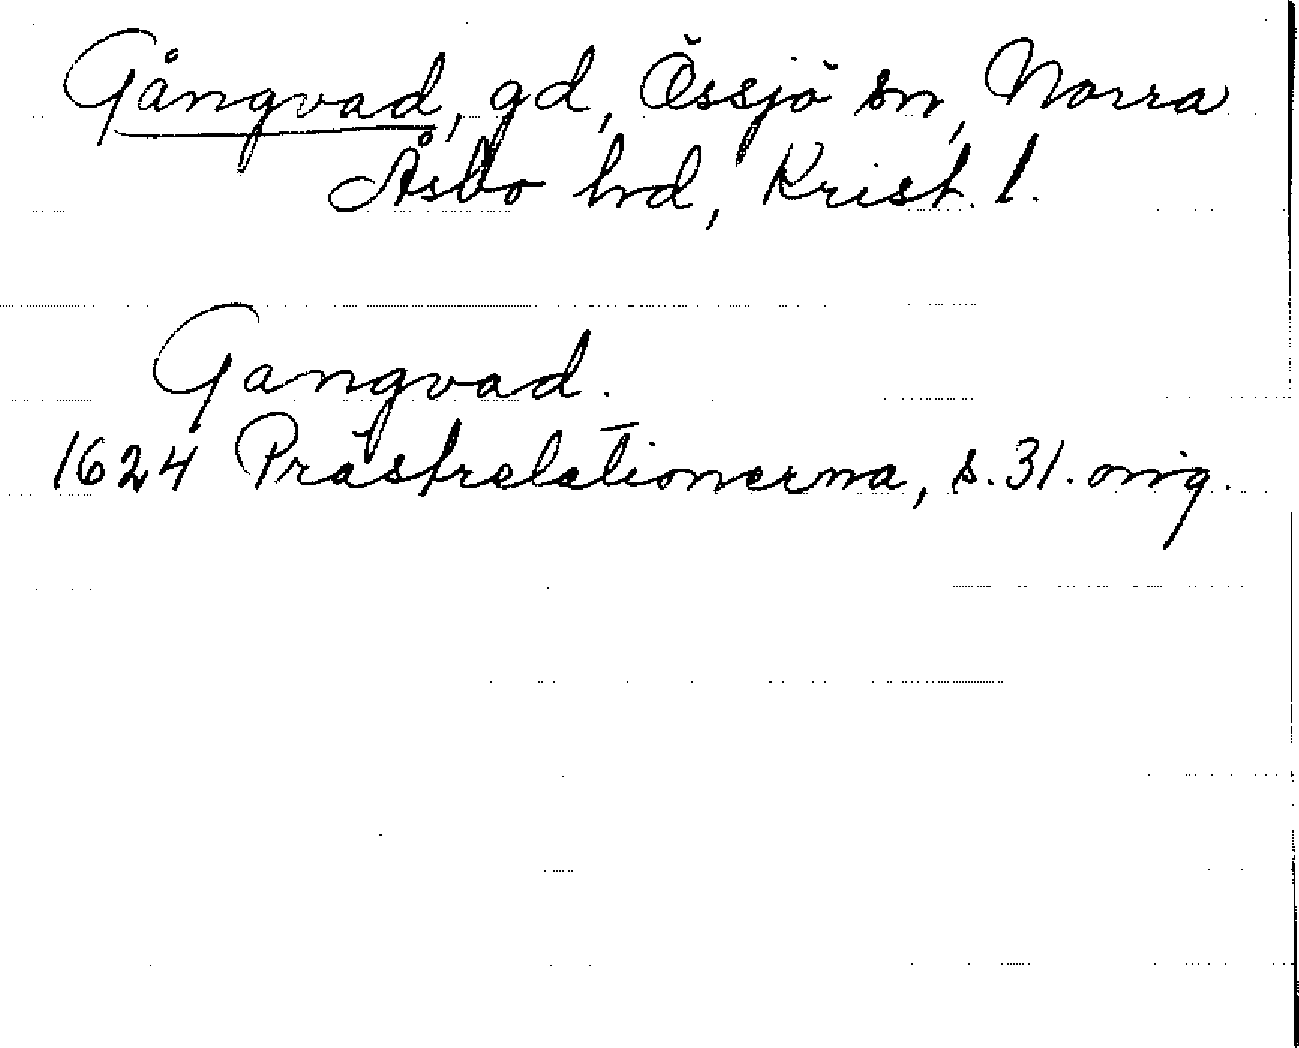 Gångvad, gd, Össjö sn, Norra
Åsbo hd, Krist. l.
Gangvad.
1624 Prästrelationerna, s. 31. orig.